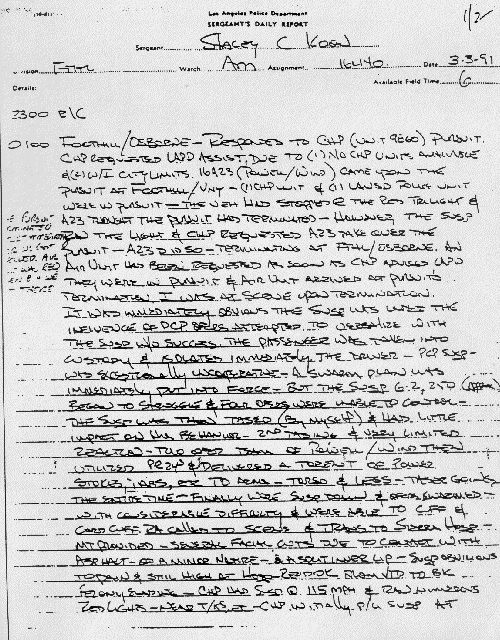 1/2
Los Angeles Police Department
SERGEANT'S DAILY REPORT
Sergeant Stacey C Koon
Division FTHL Watch AM Assignment 16L140 Date 3-3-91
Details: Available Field Time 6
2300 R/C
0100 FOOTHILL/OSBORNE - RESPONDED TO CHP (UNIT 9E60) PURSUIT.
CHP REQUESTED LAPD ASSIST, DUE TO (1) NO CHP UNITS AVAILABLE
& (2) W/I CITY LIMITS. 16A23 (POWELL/WIND) CAME UPON THE
PURSUIT AT FOOTHILL/VNY - (1) CHP UNIT & (1) LAUSD POLICE UNIT
WERE IN PURSUIT - THE VEH HAD STOPPED @ THE RED TRILIGHT &
A23 THOUGHT THE PURSUIT HAD TERMINATED - HOWEVER THE SUSP
RAN THE LIGHT & CHP REQUESTED A23 TAKE OVER THE
PURSUIT - A23 DID SO - TERMINATING AT FTHL/OSBORNE. AN
AIR UNIT HAD BEEN REQUESTED AS SOON AS CHP ADVISED LAPD
THEY WERE IN PURSUIT & AIR UNIT ARRIVED AT PURSUITS
TERMINATION. I WAS AT SCENE UPON TERMINATION.
IT WAS IMMEDIATELY OBVIOUS THE SUSP WAS UNDER THE
INFLUENCE OF PCP. OFCRS ATTEMPTED TO VERBALIZE WITH
THE SUSP W/O SUCCESS. THE PASSENGER WAS TAKEN INTO
CUSTODY & ISOLATED IMMEDIATELY. THE DRIVER - PCP SUSP -
WAS UNCOOPERATIVE - A SWARM PLAN WAS
IMMEDIATELY PUT INTO FORCE - BUT THE SUSP 6-2, 250
BEGAN TO STRUGGLE & FOUR OFCRS WERE UNABLE TO CONTROL -
THE SUSP WAS THEN TASED (BY MYSELF) & HAD LITTLE
IMPACT ON HIS BEHAVIOR - 2ND TASING & VERY LIMITED
REACTION - TWO OFCR TEAM OF POWELL/WIND THEN
UTILIZED PR24 & DELIVERED A TORRENT OF POWER
STOKES, JABS, ETC TO ARMS - TORSO & LEGS - TASER GOING
THE ENTIRE TIME - FINALLY WERE SUSP DOWN & OFCRS SWARMED
WITH CONSIDERABLE DIFFICULTY & WERE ABLE TO CUFF &
CORD CUFF. RA CALLED TO SCENE & TRANS TO HOSP -
MT PROVIDED - SEVERAL FACIAL CUTS DUE TO CONTACT WITH
ASPHALT - OF A MINOR NATURE - & A SPLIT INNER LIP - SUSP OBLIVIOUS
TO PAIN & STILL HIGH AT HOSP TO BK
FELONY EVADING - CHP HAD SUSP @ 115 MPH & RAN NUMEROUS
RED LIGHTS - CHP INITIALLY P/U SUSP AT